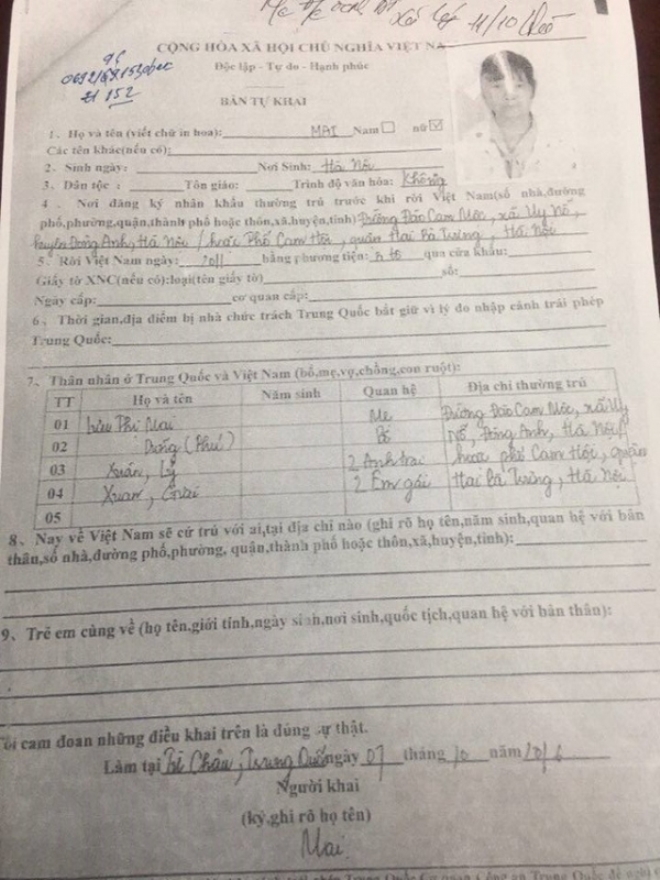 11/10
CỘNG HÒA XÃ HỘI CHỦ NGHĨA VIỆT NA
Độc lập - Tự do - Hạnh phúc
152
BẢN TỰ KHAI
1、Họ và tên (viết chữ in hoa): MAI Nam☐ nữ☑
Các tên khác(nếu có):
2、Sinh ngày: Nơi Sinh: Hà Nội
3、Dân tộc : Tôn giáo: Trình độ văn hóa: Không
4 、Nơi đăng ký nhân khẩu thường trú trước khi rời Việt Nam(số nhà,đường
phố,phường,quận,thành phố hoặc thôn,xã,huyện,tỉnh) Đường Đào Cam Mộc, xã Uy Nỗ,
huyện Đông Anh, Hà Nội / hoặc Phố Cam Hội, quận Hai Bà Trưng, Hà Nội
5、Rời Việt Nam ngày: 2011 bằng phương tiện: ô tô qua cửa khẩu:
Giấy tờ XNC(nếu có):loại(tên giấy tờ) số:
Ngày cấp: cơ quan cấp:
6、Thời gian,địa điểm bị nhà chức trách Trung Quốc bắt giữ vì lý do nhập cảnh trái phép
Trung Quốc:
7、Thân nhân ở Trung Quốc và Việt Nam (bố,mẹ,vợ,chồng,con ruột):
TT Họ và tên Năm sinh Quan hệ Địa chỉ thường trú
01 Lưu Thị Mai Mẹ Đường Đào Cam Mộc, xã Uy
02 Dưỡng (Phú) Bố Nỗ, Đông Anh, Hà Nội /
03 Xuân, Lý 2 Anh trai hoặc phố Cam Hội, quận
04 Xuan, 2 Em gái Hai Bà Trưng, Hà Nội
05
8、Nay về Việt Nam sẽ cư trú với ai,tại địa chỉ nào (ghi rõ họ tên,năm sinh,quan hệ với bản
thân,số nhà,đường phố,phường, quận,thành phố hoặc thôn,xã,huyện,tỉnh):
9、Trẻ em cùng về (họ tên,giới tính,ngày sinh,nơi sinh,quốc tịch,quan hệ với bản thân):
Tôi cam đoan những điều khai trên là đúng sự thật.
Làm tại Trung Quốc ngày 07 tháng 10 năm
Người khai
(ký,ghi rõ họ tên)
Mai